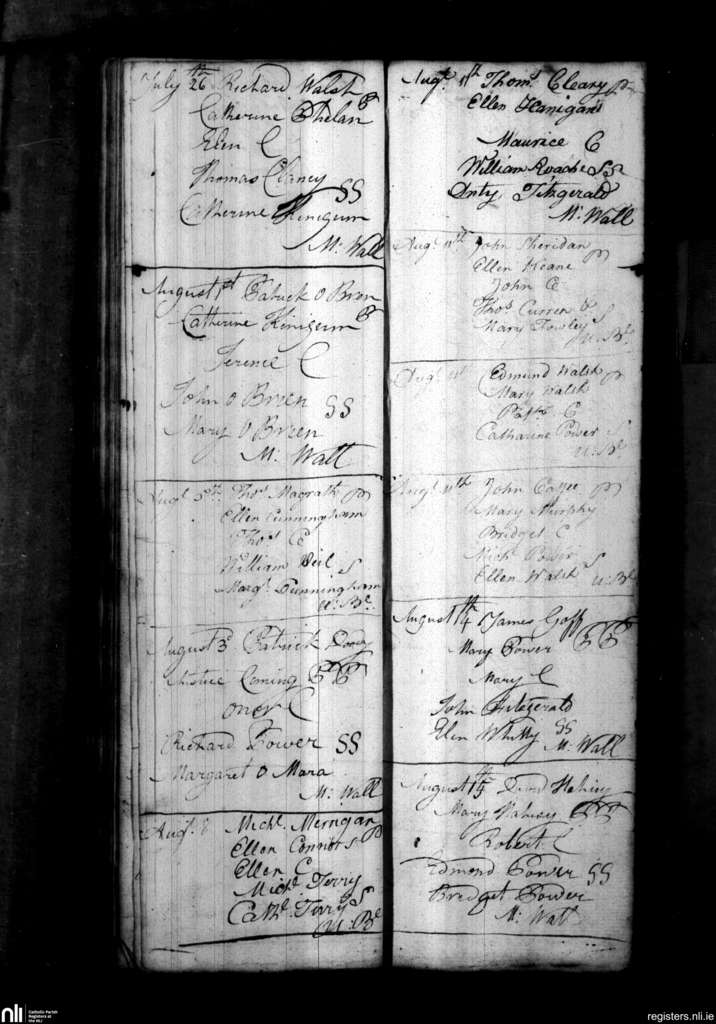 July 26th Richard Walsh
Catherine Phelan P
Elen C
Thomas Clancy
SS
Catherine Kinigum
Mr Wall
August 1st Patrick O Brien
Catherine Kinigum P
Terence C
John O Brien
SS
Mary O Brien
Mr Wall
Augt 3rd Thos Magrath P
Ellen Cunningham
Thos C
William Veil S
Margt Cunningham
August 3d Patrick
Coming PP
C
Richard Power SS
Margaret O Mara
Mr Wall
Augt 8 Michl Merrigan P
Ellen Connors
Ellen C
Michl Terry
Cathe Terry S
Augt 11th Thoms Cleary P
Ellen Flanigans
Maurice C
William Roache SS
Anty Fitzgerald
Mr Wall
Augt 11th John Sheridan P
Ellen Keane
John C
Thos Curren
Mary Fowley S
Augt 11 Edmund Walsh P
Mary Walsh
Patk C
Catharine Power S
Augt 11th John P
Mary Murphy
Bridget C
Michl Power
Ellen Walsh S
August 14th James Goff
Mary Power PP
Mary C
John Fitzgerald
Elen Whitty SS
Mr Wall
August 15th
Mary
Robert C
Edmond Power SS
Bridget Power
Mr Wall
nli
Catholic Parish
Registers at
the NLI
registers.nli.ie